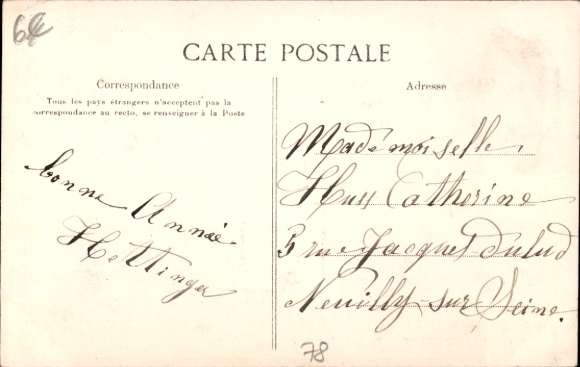 CARTE POSTALE
Correspondance
Tous les pays étrangers n'acceptent pas la
correspondance au recto, se renseigner à la Poste
bonne Année
Hettinger
Adresse
Madémoiselle
Huss Catherine
3 rue Jacques Dulud
Neuilly-sur Seine.
78